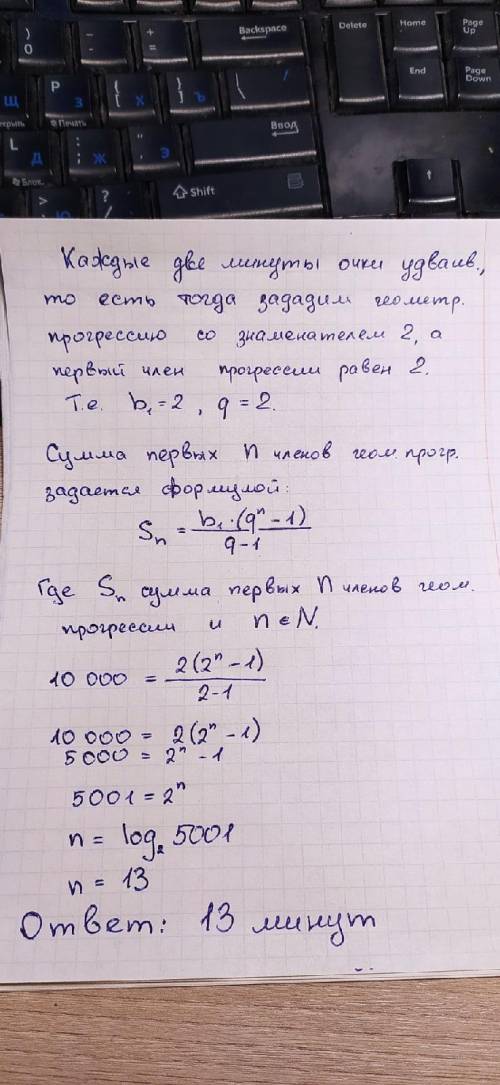 )
0
-
-
+
=
Backspace
Delete
Home
Page
Up
End
Page
Down
Щ
P
З
{
[
Х
}
]
Ъ
\
/
Печать
L
Д
:
;
Ж
"
'
Э
Ввод
Блок.
>
Ю
?
/
Shift
Каждые две минуты очки удваив.,
то есть тогда зададим геометр.
прогрессию со знаменателем 2, а
первый член прогрессии равен 2.
Т.е. b₁ = 2 , q = 2.
Сумма первых n членов геом. прогр.
задается формулой:
Sₙ = b₁·(qⁿ - 1)
q - 1
Где Sₙ сумма первых n членов геом.
прогрессии и n ∈ N.
10 000 = 2(2ⁿ - 1)
2-1
10 000 = 2(2ⁿ - 1)
5000 = 2ⁿ - 1
5001 = 2ⁿ
n = log₂ 5001
n = 13
Ответ: 13 минут